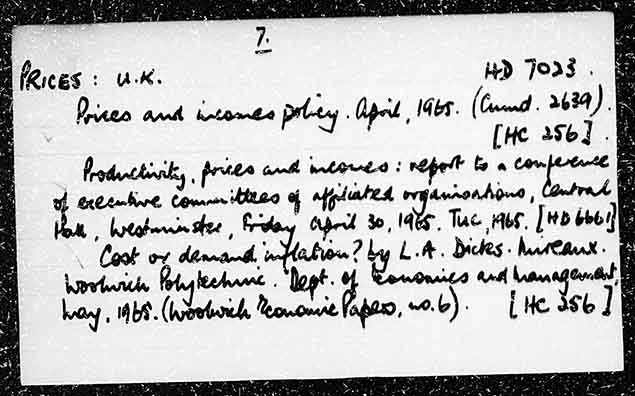 7.
PRICES: U.K. HD 7023.
Prices and incomes policy. April, 1965. (Cmnd. 2639).
[HC 256].
Productivity, prices and incomes: report to a conference
of executive committees of affiliated organisations, Central
Hall, Westminster, Friday April 30, 1965. TUC, 1965. [HD 6661]
Cost or demand inflation? by L.A. Dicks-Mireaux.
Woolwich Polytechnic. Dept. of Economics and Management,
May, 1965. (Woolwich Economic Papers, no. 6). [HC 256]